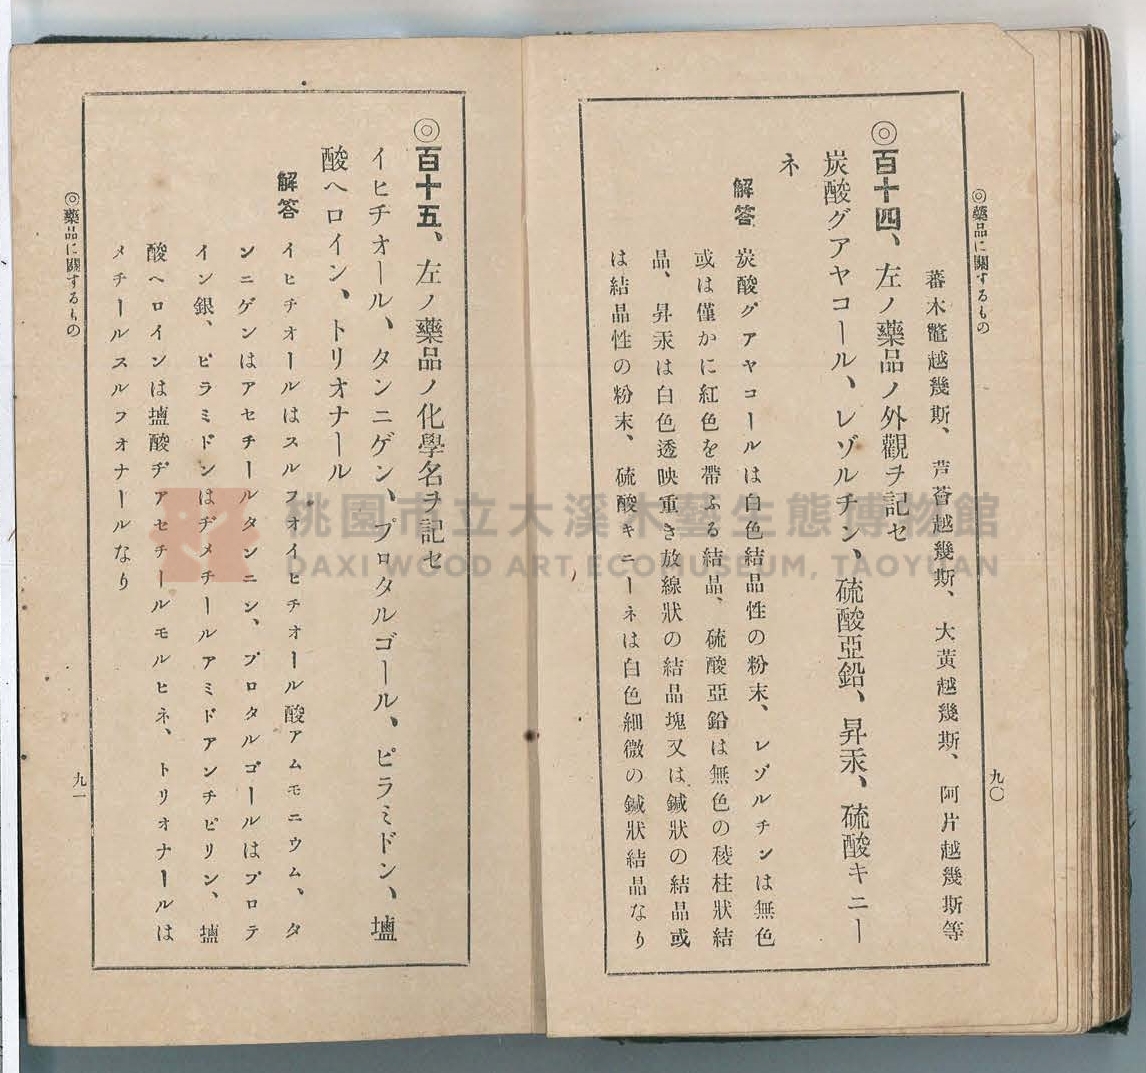 ◎藥品に關するもの
九〇
蕃木鼈越幾斯、芦薈越幾斯、大黃越幾斯、阿片越幾斯等
◎百十四、左ノ藥品ノ外觀ヲ記セ
炭酸グアヤコール、レゾルチン、硫酸亞鉛、昇汞、硫酸キニー
ネ
解答 炭酸グアヤコールは白色結晶性の粉末、レゾルチンは無色
或は僅かに紅色を帶ふる結晶、硫酸亞鉛は無色の稜柱狀結
晶、昇汞は白色透映重き放線狀の結晶塊又は鍼狀の結晶或
は結晶性の粉末、硫酸キニーネは白色細微の鍼狀結晶なり
◎百十五、左ノ藥品ノ化學名ヲ記セ
イヒチオール、タンニゲン、プロタルゴール、ピラミドン、塩
酸ヘロイン、トリオナール
解答 イヒチオールはスルフオイヒチオール酸アムモニウム、タ
ンニゲンはアセチールタンニン、プロタルゴールはプロテ
イン銀、ピラミドンはヂメチールアミドアンチピリン、塩
酸ヘロインは塩酸ヂアセチールモルヒネ、トリオナールは
メチールスルフオナールなり
◎藥品に關するもの
九一
桃園市立大溪木藝生態博物館
DAXI WOOD ART ECOMUSEUM, TAOYUAN